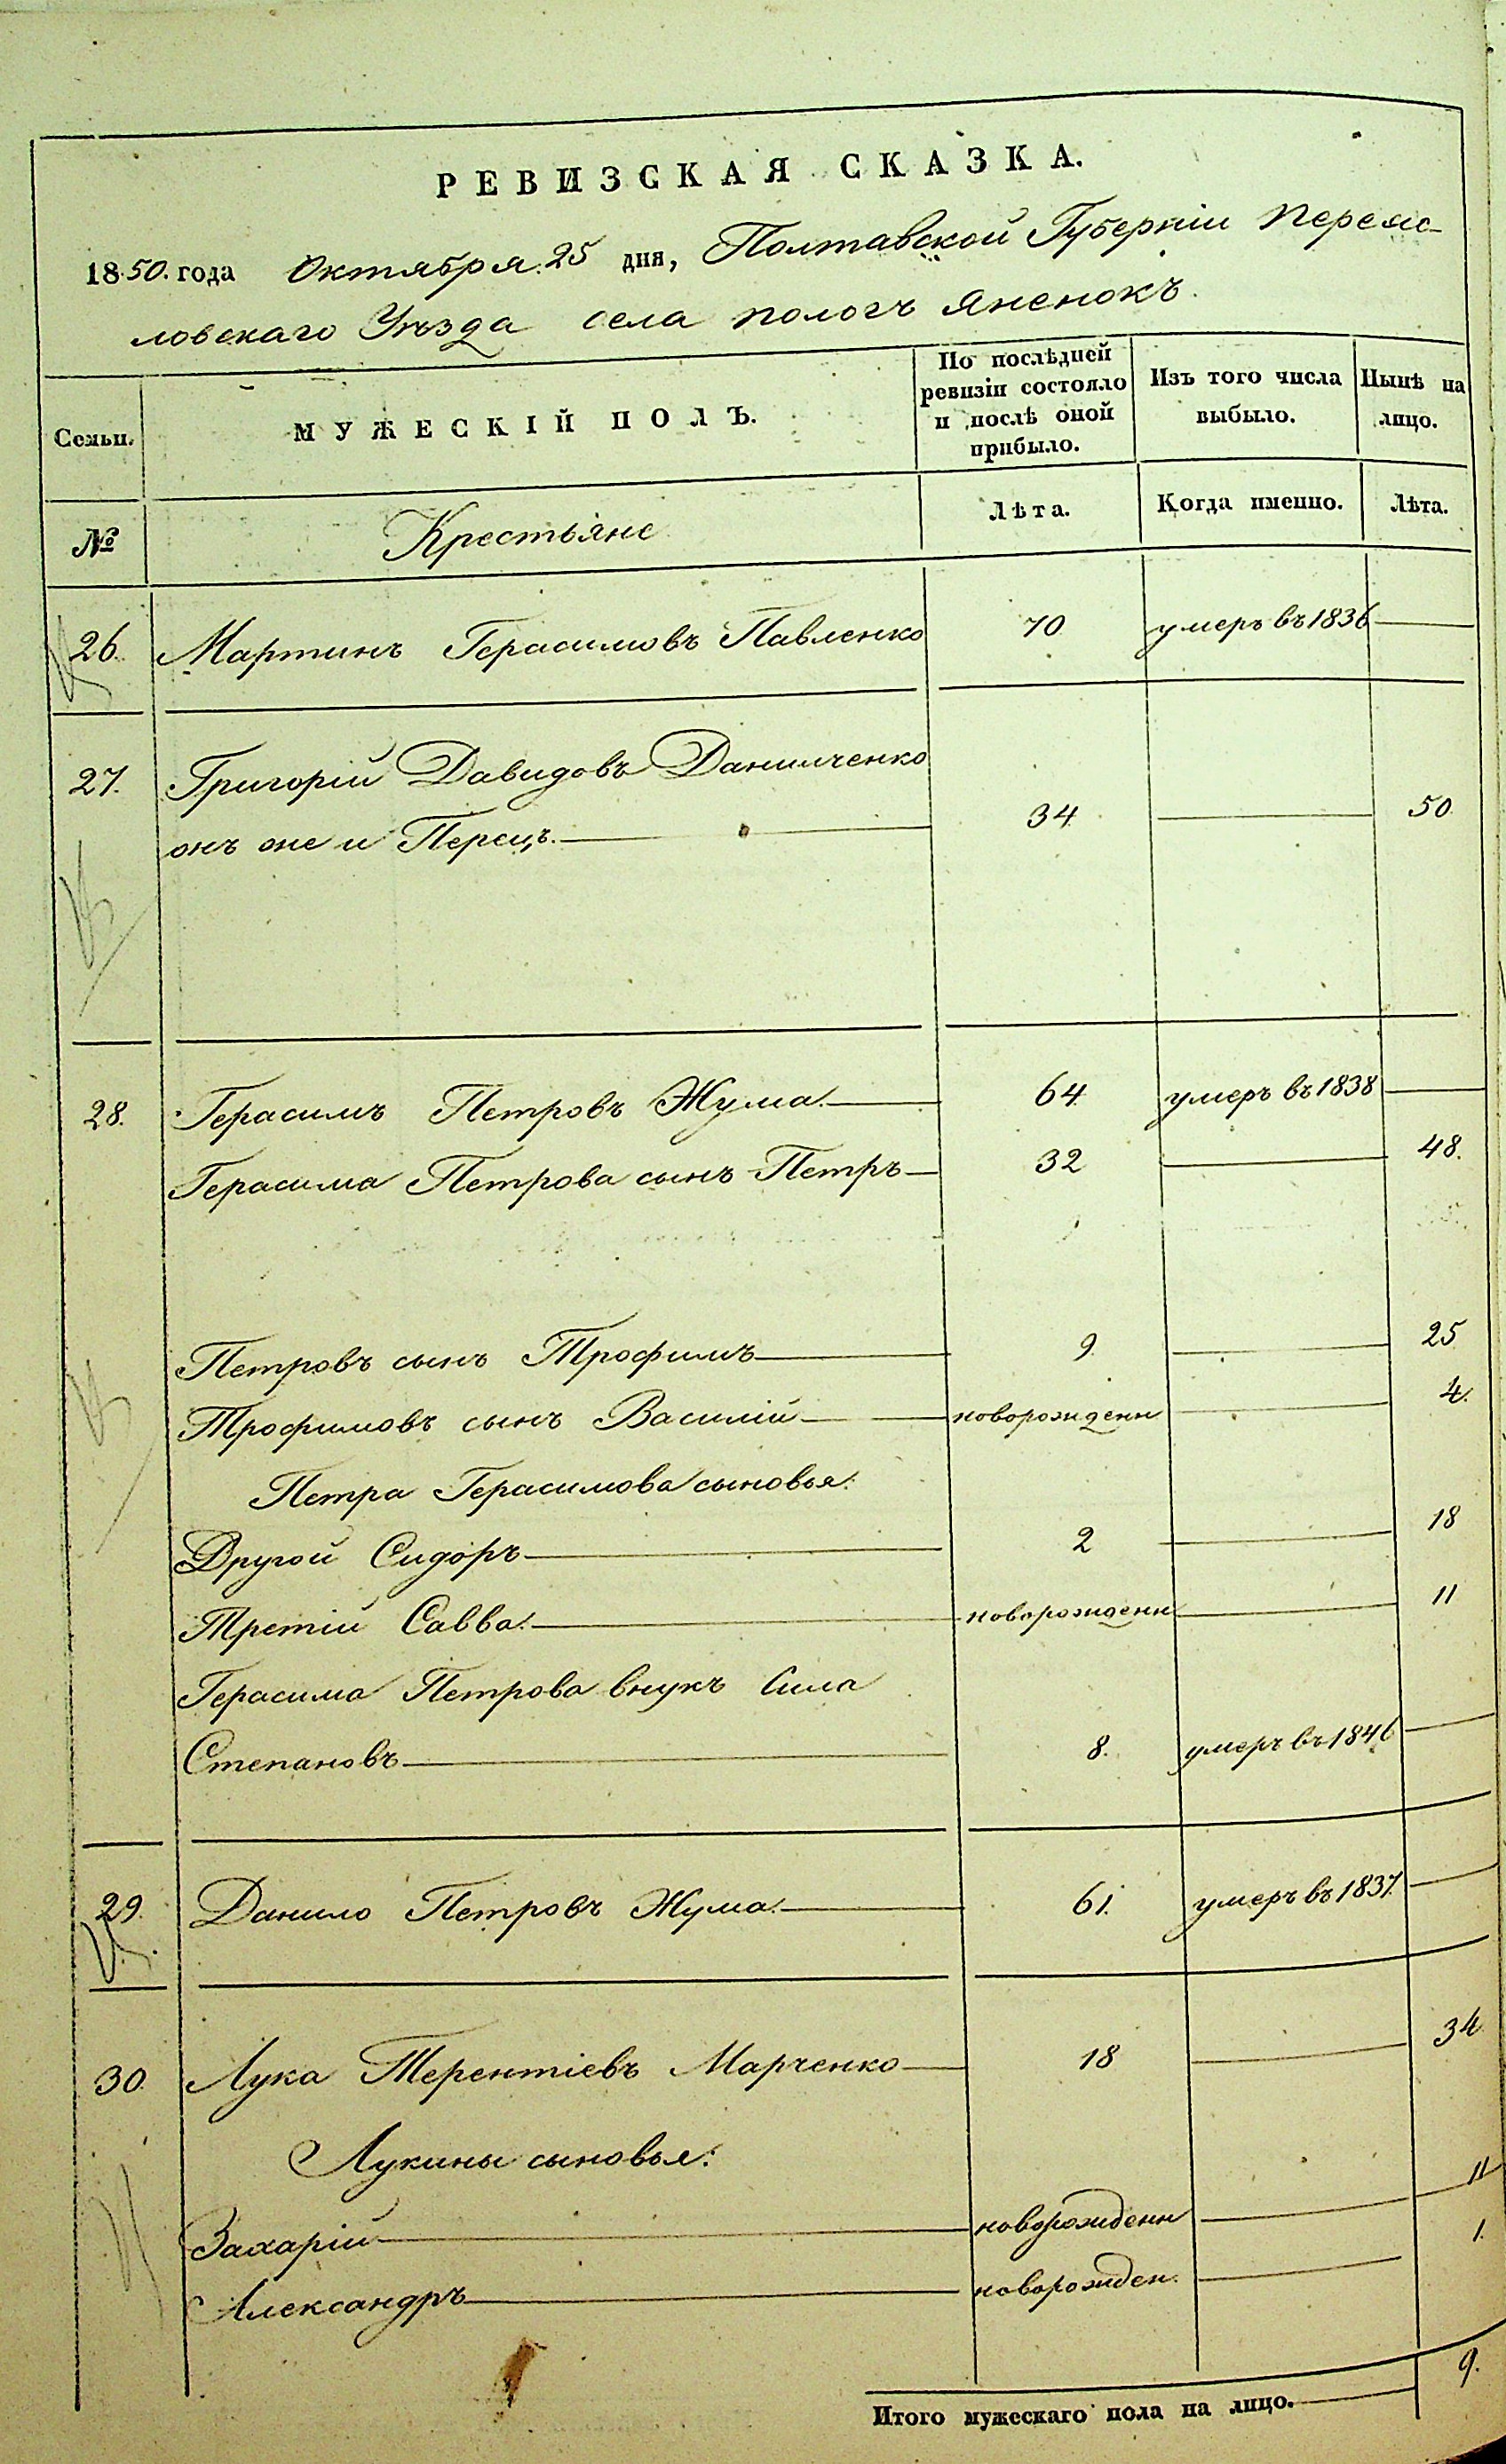 РЕВИЗСКАЯ СКАЗКА.
1850. года Октября 25 дня, Полтавской Губерніи Переяс-
ловскаго Уѣзда села пологъ Яненокъ.
Семьи. МУЖЕСКІЙ ПОЛЪ. По послѣдней ревизіи состояло и послѣ оной прибыло. Изъ того числа выбыло. Нынѣ на лицо.
№ Крестьяне Лѣта. Когда именно. Лѣта.
26. Мартинъ Герасимовъ Павленко 70 умеръ въ 1836
27. Григорій Давидовъ Данилченко
онъ же и Перецъ. 34. 50
28. Герасимъ Петровъ Жума. 64 умеръ въ 1838
Герасима Петрова сынъ Петръ 32 48.
Петровъ сынъ Трофимъ 9. 25
Трофимовъ сынъ Василій новорожденн 4.
Петра Герасимова сыновья:
Другой Сидоръ 2 18
Третій Савва. новорожденн 11
Герасима Петрова внукъ Сила
Степановъ 8. умеръ въ 1846
29. Данило Петровъ Жума. 61. умеръ въ 1837.
30. Лука Терентіевъ Марченко 18 34
Лукины сыновья:
Захарій новорожденн 11
Александръ новорожден. 1.
Итого мужескаго пола на лицо. 9.